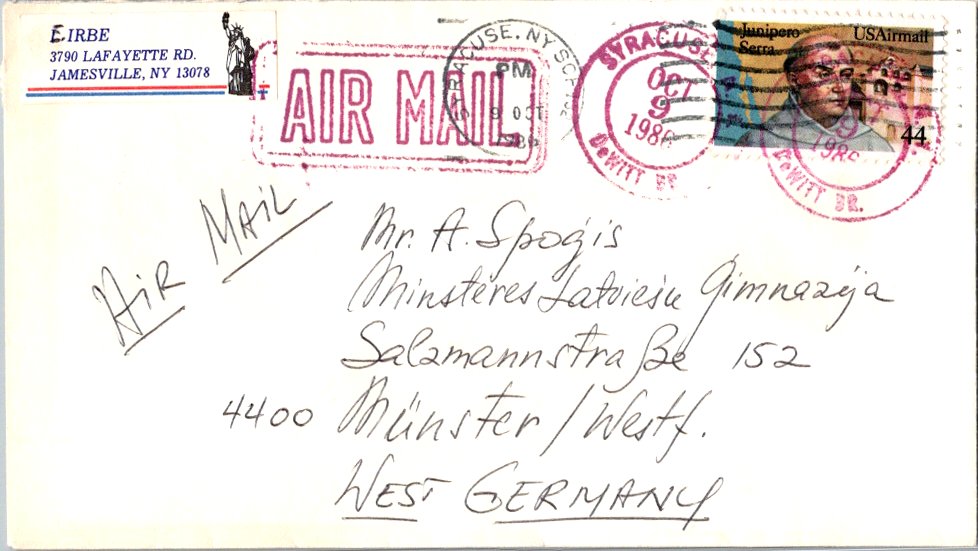 E. IRBE
3790 LAFAYETTE RD.
JAMESVILLE, NY 13078
AIR MAIL
SYRACUSE, NY
PM
9 OCT
1986
SYRACUSE
OCT
9
1986
DEWITT BR.
Junipero
Serra
USAirmail
44
9
1986
DEWITT BR.
AIR MAIL
Mr. A. Spoģis
Minsteres Latviešu Gimnazija
Salzmannstraße 152
4400 Münster/Westf.
WEST GERMANY